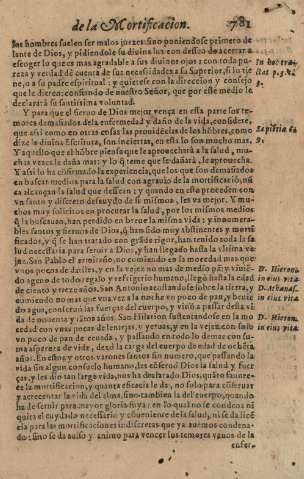 de la Mortificacion. 781
los hombres suelen ser malos juezes: sino poniendose primero de
lante de Dios, y pidiendole su divina luz con desseo de acertar a
escoger lo que es mas agradable a sus divinos ojos: con toda pu
reza y verdad dè cuenta de sus necessidades a su Superior, si lo tie
ne, o a su padre espiritual: y quietese con la direccion y consejo
que le dieren: confiando de nuestro Señor, que por este medio le
declararà su santissima voluntad.
Y para que el siervo de Dios mejor vença en esta parte los te-
mores demasiados de la enfermedad y daño de la vida, considere,
que assi como en otras cosas las providẽcias de los hõbres, como
dize la divina Escritura, son inciertas, en esta lo son mucho mas.
Y aquello que el hõbre piensa que le aprovecharà a la salud, mu-
chas vezes le daña mas: y lo q̃ teme que se dañarà, le aprovecha.
Y assi lo ha cõfirmado la experiencia, que los que son demasiados
en buscar medios para la salud con agravio de la mortificaciõ, nũ
ca alcançan la salud que dessean: y quando en esto proceden con
un santo y discreto descuydo de si mismos, les va mejor. Y mu-
chos muy solicitos en procurar la salud, por los mismos medios
q̃ la buscavan, han perdido en breve la misma vida: y innumera-
bles santos y siervos de Dios, q̃ han sido muy abstinentes y morti
ficados, y q̃ se han tratado con grãde rigor, han tenido toda la sa
lud necessaria para servir a Dios, y han llegado hasta la ultima ve
jez. San Pablo el ermitaño, no comiendo en la mocedad mas que
unos pocos de datiles, y en la vejez no mas de medio pã: y vinié-
do ageno de todo regalo y refrigerio humano, llegò hasta la edad
de ciento y treze años. San Antonio acostandose sobre la tierra, y
comiendo no mas que una vez a la noche un poco de pan, y bevié
do agua, conservò las fuerças del cuerpo, y vivio a passar desta vi
da de noventa y cinco años. San Hilarion sustentandose en la mo
cedad con unas pocas de lentejas, y yervas, y en la vejez con solo
un poco de pan de cevada, y passando en todo lo demas con su-
ma aspereza de vida, dexò la carga del cuerpo de edad de ochenta
años. En estos, y otros varones santos sin numero, que passando la
vida sin algun consuelo humano, les cõservò Dios la salud y fuer
ças, y les dio tan larga vida, nos ha declarado Dios, quãto favore-
ce la mortificacion, y quanta eficacia le da, no solo para esforçar
y acrecentar la vida del alma, sino tambien la del cuerpo, quando
ha de servir para mayor gloria suya: en lo qual no se condena ni
quita el cuydado necessario y conveniente de la salud, ni se da licẽ
cia para las mortificaciones indiscretas que ya avemos condena-
do: sino se da aviso y animo para vencer los temores vanos de la
enfer-
D. Hieron.
in eius vita
D. Athanas.
in eius vita.
D. Hieron.
in eius vita.